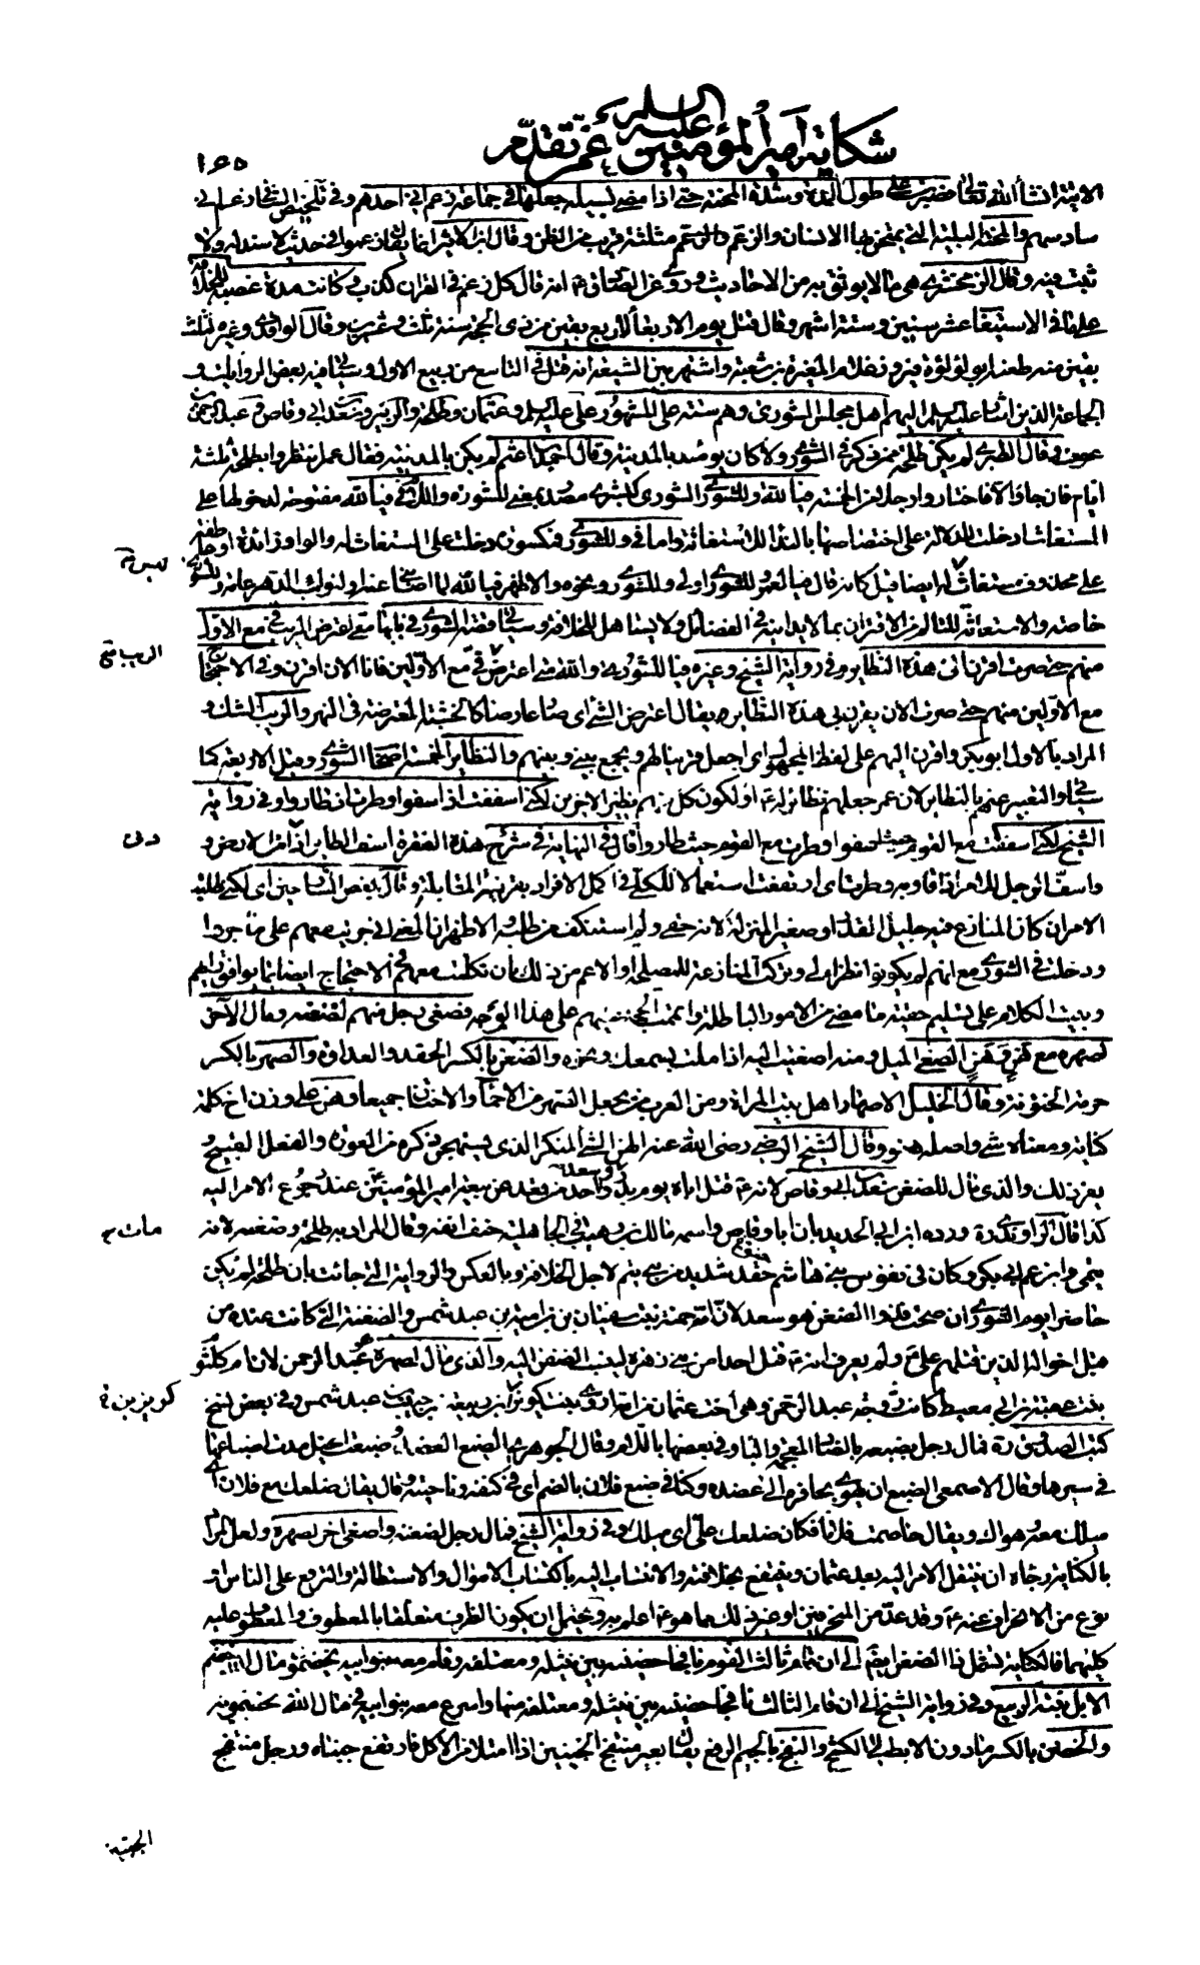 شكاية أمير المؤمنين عليه السلام عمّن تقدّم
١٦٥
الاتية انشأ الله تعالى فصبرت على طول المدة وشدة المحنة حتى اذا مضى لسبيله جعلها في جماعة زعم اني احدهم وفي تلخيص الشافي زعم اني
سادسهم والمحنة البلية التي يمتحن بها الانسان والزعم مثلثة قريب من الظن وقال ابن الاثير انما يقال زعموا في حديث لا سند له ولا
ثبت فيه وقال الزمخشري هي ما لا يوثق به من الاحاديث وروي عن الصادق ع انه قال كل زعم في القران كذب وكانت مدة غصبه للخلافة
على ما في الاستيعاب عشر سنين وستة اشهر وقال قتل يوم الاربعاء لاربع بقين من ذي الحجة سنة ثلث وعشرين وقال الواقدي وغيره لثلث
بقين منه طعنه ابو لؤلؤة فيروز غلام المغيرة بن شعبة واشتهر بين الشيعة انه قتل في التاسع من ربيع الاول وسيأتي فيه بعض الروايات و
الجماعة الذين اشار عليه السلام اليهم اهل مجلس الشورى وهم ستة على المشهور علي عليه السلام وعثمان وطلحة والزبير وسعد بن ابي وقاص وعبد الرحمن بن
عوف وقال الطبري لم يكن طلحة ممن ذكر في الشورى ولا كان يومئذ بالمدينة وقال احمد بن اعثم لم يكن بالمدينة فقال عمر انتظروا بطلحة ثلثة
ايام فان جاء والا فاختاروا رجلا من الخمسة فيا لله وللشورى الشورى كبشرى مصدر بمعنى المشورة واللام في فيا لله مفتوحة لدخولها على
المستغاث ادخلت للدلالة على اختصاصها بالنداء للاستغاثة واما في وللشورى فمكسورة دخلت على المستغاث له والواو زائدة او عاطفة
على محذوف مستغاث له ايضا قيل كانه قال فيا لعمر وللشورى او لي وللشورى ونحوه والاظهر فيا لله لما اصابني عنه او لنوائب الدهر عامة وللشورى
خاصة والاستغاثة للتألم من الاقتران بمن لا يدانيه في الفضائل ولا يستاهل للخلافة وسيأتي قصة الشورى في بابها متى اعترض الريب في مع الاول
منهم حتى صرت اقرن الى هذه النظائر وفي رواية الشيخ وغيره فيا للشورى والله متى اعترض في مع الاولين فانا الان اقرن وفي الاحتجاج
مع الاولين منهم حتى صرت الان يقرن بي هذه النظائر يقال اعترض الشئ اي صار عارضا كالخشبة المعترضة في النهر والريب الشك و
المراد بالاول ابو بكر واقرن اليهم على لفظ المجهول اي اجعل قرينا لهم ويجمع بيني وبينهم والنظائر الخمسة اصحاب الشورى وقيل الاربعة كما
سيأتي والتعبير عنهم بالنظائر لان عمر جعلهم نظائر له ع او لكون كل منهم نظير الاخرين لكني اسففت اذ اسفوا وطرت اذ طاروا وفي رواية
الشيخ لكني اسففت مع القوم حيث اسفوا وطرت مع القوم حيث طاروا قال في النهاية في شرح هذه الفقرة اسف الطائر اذا دنا من الارض و
واسف الرجل للامر اذا قاربه وطرت اي ارتفعت استعمالا للكلي في اكمل الافراد بقرينة المقابلة وقال بعض الشارحين اي لكني طلبت
الامر ان كان المنازع فيه جليل القدر او صغير المنزلة لانه حقي ولم استنكف من طلبه والاظهر ان المعنى اني جريت معهم على ما جروا
ودخلت في الشورى مع انهم لم يكونوا نظراء لي وتركت المنازعة للمصلحة او الاعم من ذلك بان تكلمت معهم في الاحتجاج ايضا بما يوافق رأيهم
وبنيت الكلام على تسليم حقية ما مضى من الامور الباطلة واتممت الحجة عليهم على هذا الوجه فصغى رجل منهم لضغنه ومال الاخر
لصهره مع هن وهن الصغي الميل ومنه اصغيت اليه اذا ملت بسمعك ونحوه والضغن بالكسر الحقد والعداوة والصهر بالكسر
حرمة الختونة وقال الخليل الاصهار اهل بيت المراة ومن العرب من يجعل الصهر من الاحماء والاختان جميعا وهن على وزن اخ كلمة
كناية ومعناه شئ واصله هنو وقال الشيخ الرضي رضي الله عنه الهن الشئ المنكر الذي يستهجن ذكره من العورة والفعل القبيح و
غير ذلك والذي مال للضغن سعد بن ابي وقاص لانه ع قتل اباه يوم بدر وسعد احد من قعد عن بيعة امير المؤمنين عند رجوع الامر اليه
كذا قال الراوندي ره ورده ابن ابي الحديد بان ابا وقاص واسمه مالك بن وهيب مات في الجاهلية حتف انفه وقال المراد به طلحة وضغنه لانه
تيمي وابن عم ابي بكر وكان في نفوس بني هاشم حقد شديد من بني تيم لاجل الخلافة وبالعكس والرواية التي جاءت بان طلحة لم يكن
حاضرا يوم الشورى ان صحت فذو الضغن هو سعد لان امه حمنة بنت سفيان بن امية بن عبد شمس والضغنة التي كانت عنده من
قبل اخواله الذين قتلهم علي ع ولم يعرف انه ع قتل احدا من بني زهرة لينسب الضغن اليه والذي مال لصهره هو عبد الرحمن لان ام كلثوم
بنت عقبة بن ابي معيط كانت زوجة عبد الرحمن وهي اخت عثمان من امه اروى بنت كريز بن ربيعة بن حبيب بن عبد شمس وفي بعض نسخ
كتب الصدوق ره فمال رجل بضبعه بالضاد المعجمة والباء وفي بعضها باللام وقال الجوهري الضبع العضد وضبعت الخيل مدت اضباعها
في سيرها وقال الاصمعي الضبع ان يهوي بحافره الى عضده وكنا في ضبع فلان بالضم اي في كنفه وناحيته وقال يقال ضلعك مع فلان اي
ميلك معه وهواك ويقال خاصمت فلانا فكان ضلعك علي اي ميلك وفي رواية الشيخ فمال رجل لضغنه واصغى اخر لصهره ولعل المراد
بالكناية رجاؤه ان ينتقل الامر اليه بعد عثمان وينتفع بخلافته والانتساب اليه باكتساب الاموال والاستطالة والترفع على الناس او
نوع من الانحراف عنه ع وقد عد من المنحرفين او غير ذلك مما هو ع اعلم به ويحتمل ان يكون الظرف متعلقا بالمعطوف والمعطوف عليه
كليهما فالكناية تشمل ذا الضغن ايضا الى ان قام ثالث القوم نافجا حضنيه بين نثيله ومعتلفه وقام معه بنو ابيه يخضمون مال الله خضم
الابل نبتة الربيع وفي رواية الشيخ الى ان قام الثالث نافجا حضنيه بين نثيله ومعتلفه منها واسرع معه بنو ابيه في مال الله يخضمونه
والحضن بالكسر ما دون الابط الى الكشح والنفج بالجيم الرفع يقال بعير منتفج الجنبين اذا امتلا من الاكل فارتفع جنباه ورجل منتفج
الجنبين